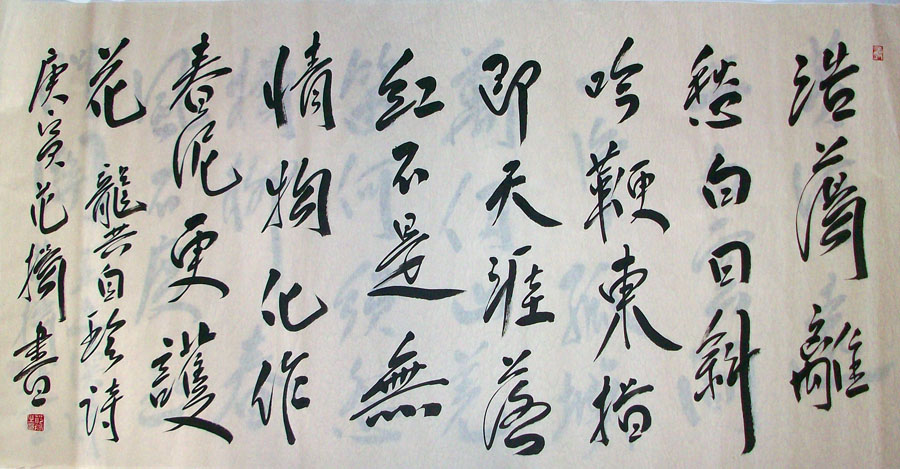 浩蕩離
愁白日斜
吟鞭東指
即天涯落
紅不是無
情物化作
春泥更護
花 龔自珍詩
庚寅 范 書